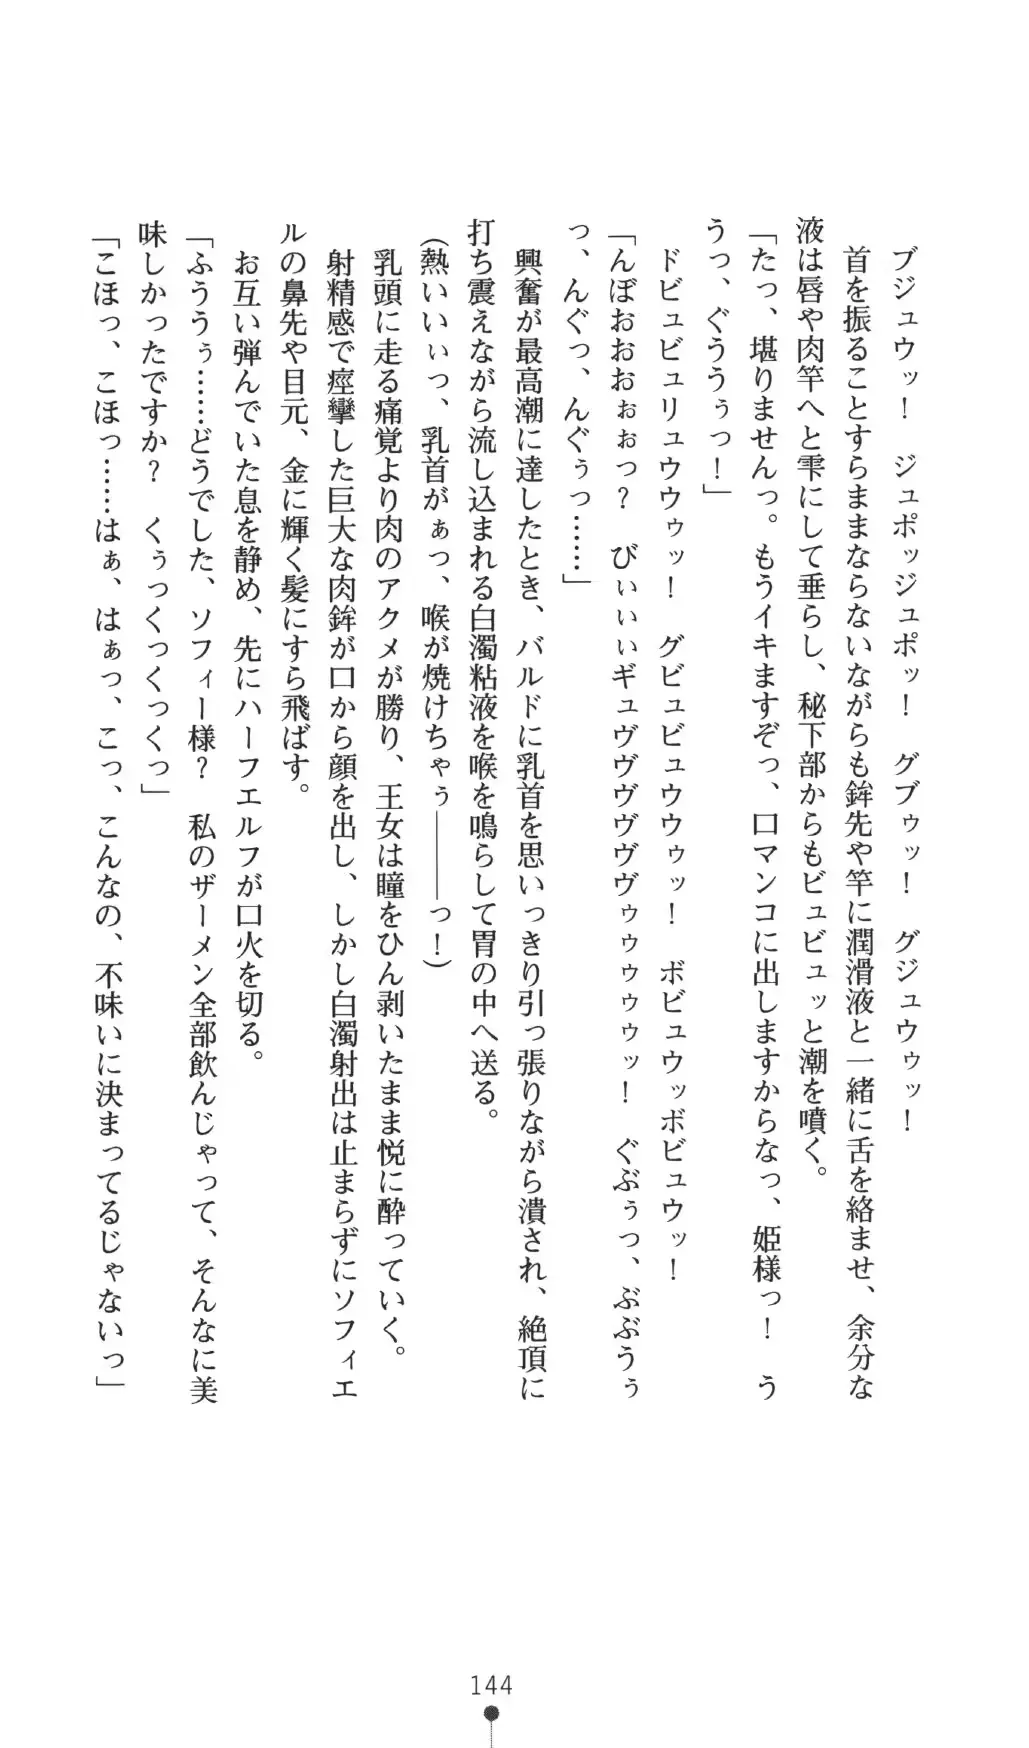 ブジュウッ！　ジュポッジュポッ！　グブゥッ！　グジュウゥッ！
首を振ることすらままならないながらも鉾先や竿に潤滑液と一緒に舌を絡ませ、余分な
液は唇や肉竿へと雫にして垂らし、秘下部からもビュビュッと潮を噴く。
「たっ、堪りませんっ。もうイキますぞっ、口マンコに出しますからなっ、姫様っ！　う
うっ、ぐううぅっ！」
ドビュビュリュウウゥッ！　グビュビュウウゥッ！　ボビュウッボビュウッ！
「んぼおおおぉぉっ？　びぃぃぃギュヴヴヴヴヴゥゥゥゥッ！　ぐぶぅっ、ぶぶうぅ
っ、んぐっ、んぐぅっ……」
興奮が最高潮に達したとき、バルドに乳首を思いっきり引っ張りながら潰され、絶頂に
打ち震えながら流し込まれる白濁粘液を喉を鳴らして胃の中へ送る。
（熱いいぃっ、乳首がぁっ、喉が焼けちゃぅ――っ！）
乳頭に走る痛覚より肉のアクメが勝り、王女は瞳をひん剥いたまま悦に酔っていく。
射精感で痙攣した巨大な肉鉾が口から顔を出し、しかし白濁射出は止まらずにソフィエ
ルの鼻先や目元、金に輝く髪にすら飛ばす。
お互い弾んでいた息を静め、先にハーフエルフが口火を切る。
「ふううぅ……どうでした、ソフィー様？　私のザーメン全部飲んじゃって、そんなに美
味しかったですか？　くぅっくっくっくっ」
「こほっ、こほっ……はぁ、はぁっ、こっ、こんなの、不味いに決まってるじゃないっ」
144